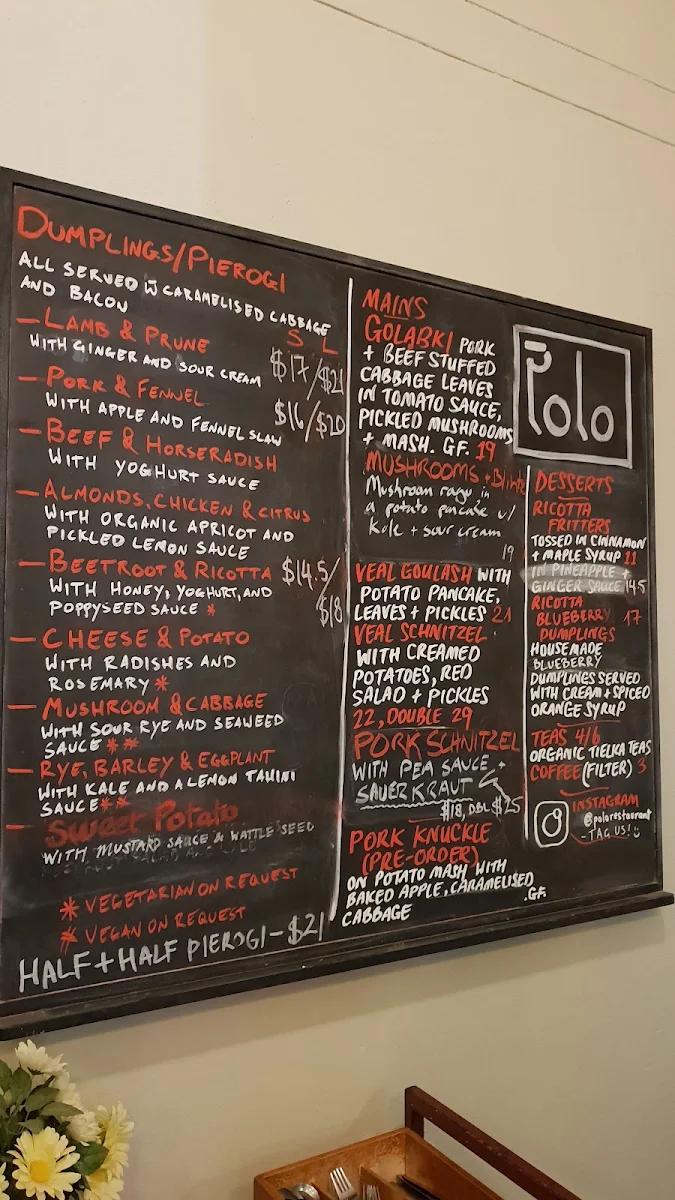 DUMPLINGS/PIEROGI
ALL SERVED W̄ CARAMELISED CABBAGE
AND BACON
S L
— LAMB & PRUNE
WITH GINGER AND SOUR CREAM
$17/$21
— PORK & FENNEL
WITH APPLE AND FENNEL SLAW
$16/$20
— BEEF & HORSERADISH
WITH YOGHURT SAUCE
— ALMONDS, CHICKEN & CITRUS
WITH ORGANIC APRICOT AND
PICKLED LEMON SAUCE
— BEETROOT & RICOTTA
$14.5/
$18
WITH HONEY, YOGHURT, AND
POPPYSEED SAUCE *
— CHEESE & POTATO
WITH RADISHES AND
ROSEMARY *
— MUSHROOM & CABBAGE
WITH SOUR RYE AND SEAWEED
SAUCE * *
— RYE, BARLEY & EGGPLANT
WITH KALE AND A LEMON TAHINI
SAUCE * *
— Sweet Potato
WITH MUSTARD SAUCE & WATTLE SEED
* VEGETARIAN ON REQUEST
* VEGAN ON REQUEST
HALF + HALF PIEROGI - $21
MAINS
GOLABKI PORK
+ BEEF STUFFED
CABBAGE LEAVES
IN TOMATO SAUCE,
PICKLED MUSHROOMS
+ MASH. GF. 19
MUSHROOMS +
Mushroom ragu in
a potato pancake w/
Kale + sour cream
19
VEAL GOULASH WITH
POTATO PANCAKE,
LEAVES + PICKLES 21
VEAL SCHNITZEL
WITH CREAMED
POTATOES, RED
SALAD + PICKLES
22, DOUBLE 29
PORK SCHNITZEL
WITH PEA SAUCE +
SAUERKRAUT
$18, DBL $25
PORK KNUCKLE
(PRE-ORDER)
ON POTATO MASH WITH
BAKED APPLE, CARAMELISED
CABBAGE .GF.
Polo
DESSERTS
RICOTTA
FRITTERS
TOSSED IN CINNAMON
+ MAPLE SYRUP 11
IN PINEAPPLE +
GINGER SAUCE 14.5
RICOTTA
BLUEBERRY 17
DUMPLINGS
HOUSEMADE
BLUEBERRY
DUMPLINGS SERVED
WITH CREAM + SPICED
ORANGE SYRUP
TEAS 4/6
ORGANIC TIELKA TEAS
COFFEE (FILTER) 3
INSTAGRAM
@polorestaurant
- TAG US! :)